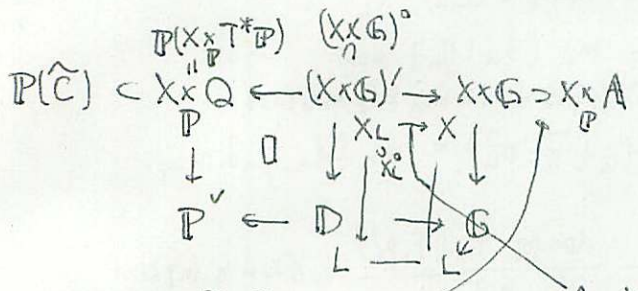 ℙ(X×_ℙ T*ℙ) (X×𝔾)°
∥ ∩
ℙ(C̃) ⊂ X×_ℙ Q ← (X×𝔾)′ → X×𝔾 ⊃ X×_ℙ 𝔸
↓ □ ↓ X_L → X ↓
∪ X_L°
ℙ^∨ ← 𝔻 → 𝔾
L — L^∨